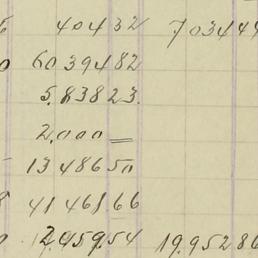 40432 703444
6039482
5.83823.
2.000=
1348650
4146166
2.959.54 19.95286